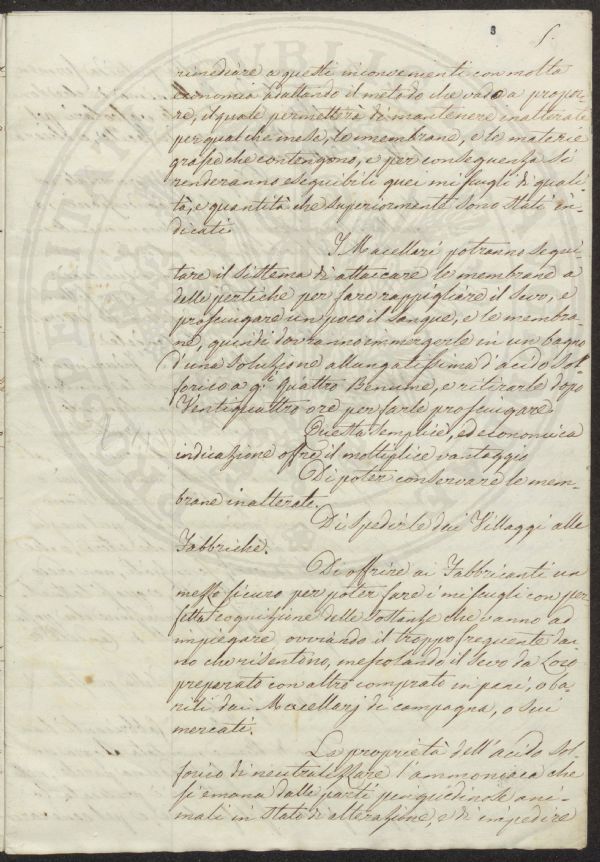 8 5.
rimediare a questi inconvenienti con molta
economia adattando il metodo che vado a propor-
re, il quale permetterà di mantenere inalterate
per qualche mese, le membrane, e le materie
grasse che contengono, e per conseguenza si
renderanno eseguibili quei miscugli di quali-
tà, e quantità che superiormente sono stati in-
dicati.
I Macellari potranno segui-
tare il sistema di attaccare le membrane a
delle pertiche per fare rappigliare il sevo, e
prosciugare un poco il sangue, e le membra-
ne, quindi dovranno immergerle in un bagno
d'una soluzione allungatissima d'acido Sol-
forico a quattro Beaumé, e ritirarle dopo
Ventiquattro ore per farle prosciugare.
Questa semplice, ed economica
indicazione offre il moltiplice vantaggio
Di poter conservare le mem-
brane inalterate.
Di spedirle dai Villaggi alle
Fabbriche.
Di offrire ai Fabbricanti un
messo sicuro per poter fare i miscugli con per-
fetta cognizione delle sostanze che vanno ad
impiegare ovviando il troppo frequente dan-
no che risentono, mescolando il Sevo da Loro
preparato con altro comprato in pani, o ba-
rili dai Macellarj di campagna, o sui
mercati.
La proprietà dell'acido Sol-
forico di neutralizzare l'ammoniaca che
si emana dalle parti pinguedinose ani-
mali in stato di alterazione, e di impedire